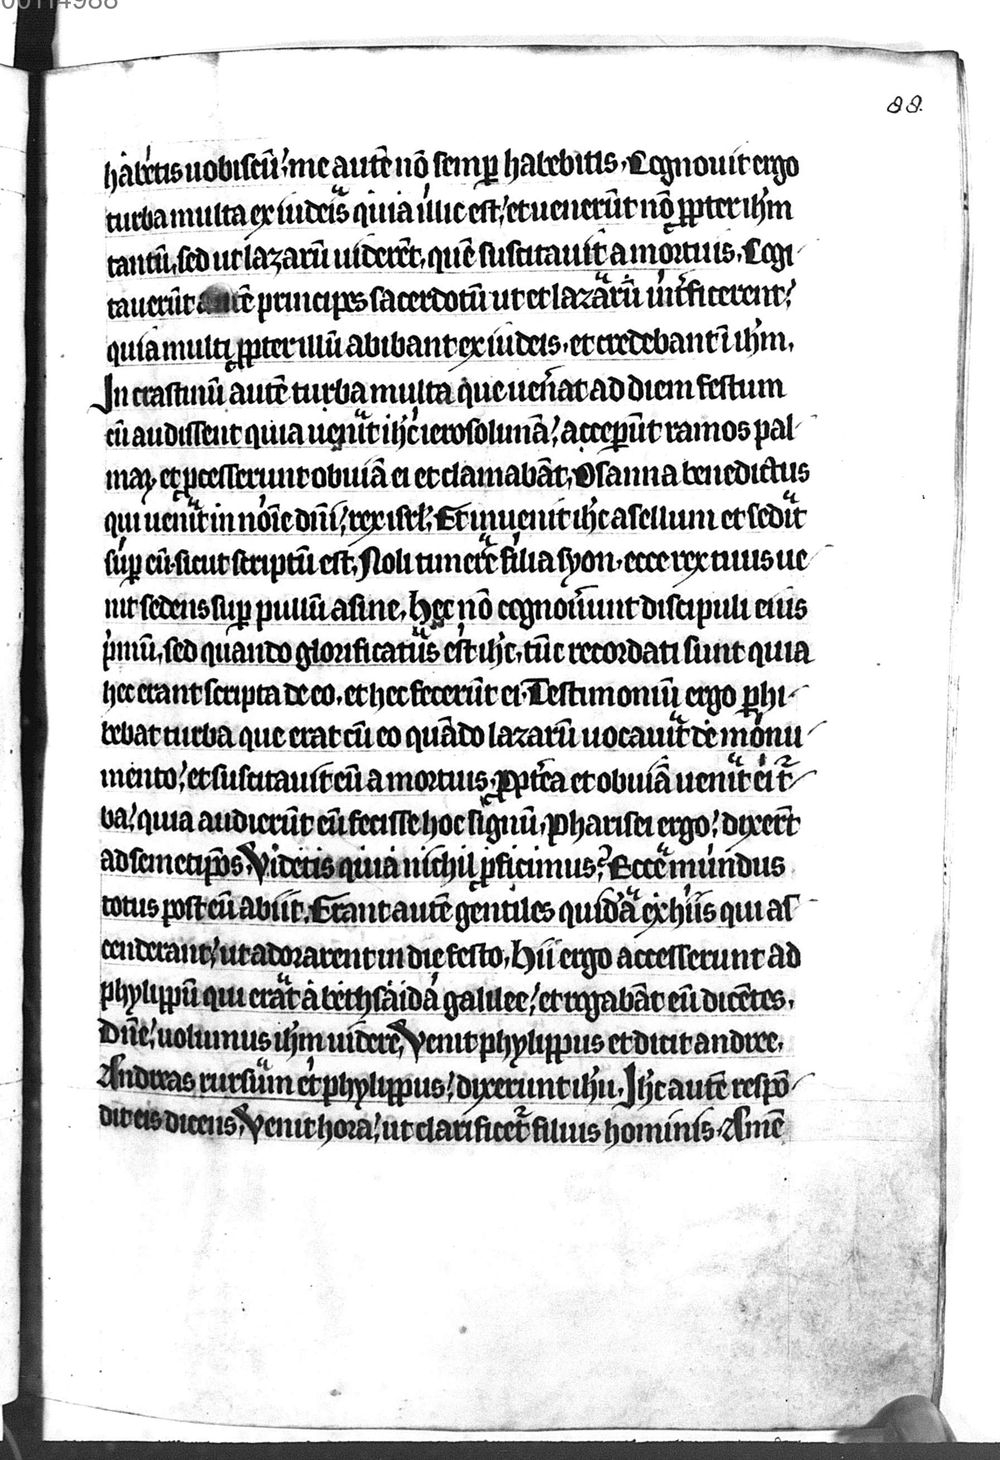 00114988
88.
habetis uobiscū; me autē nō semꝑ habebitis. Cognouit ergo
turba multa ex iudeis quia illic est; et uenerūt nō ꝓpter ihm̄
tantū, sed ut lazarū uiderēt, quē suscitauit a mortuis. Cogi-
tauerūt autē principes sacerdotū ut et lazarū int̄ficerent;
quia multi ꝓpter illū abibant ex iudeis, et credebant ī ihm̄.
In crastinū autē turba multa que uen̄at ad diem festum
cū audissent quia uenit ihc̄ ierosolimā; acceꝑūt ramos pal-
maꝝ, et ꝓcesserunt obuiā ei et clamabāt, Osanna benedictus
qui uenit in nōie dn̄i; rex isrl̄; Et inuenit ihc̄ asellum et sedit
suꝑ eū. sicut scriptū est. Noli timere filia syon, ecce rex tuus ue-
nit sedens suꝑ pullū asine. Hec nō cognou͛unt discipuli eius
pimū, sed quando glorificatus est ihc̄, tūc recordati sunt quia
hec erant scripta de eo, et hec fecerūt ei. Testimoniū ergo ꝑhi-
bebat turba que erat cū eo quādo lazarū uocauit de monu-
mento; et suscitauit eū a mortuis. ꝓpt̄ea et obuiā uenit ei t̄-
ba; quia audierūt eū fecisse hoc signū. Pharisei ergo; dixert̄
ad semetip̄os. Videtis quia nichil ꝓficimus; Ecce mundus
totus post eū abiit. Erant autē gentiles quidā ex hiis qui as-
cenderant; ut adorarent in die festo. Hii ergo accesserunt ad
phylippū qui erat a bethsaida galilee; et rogabāt eū dicētes.
Dn̄e; uolumus ihm̄ uidere. Venit phylippus et dicit andree.
Andreas rursum et phylippus; dixerunt ihū. Ihc̄ autē respō-
dit eis dicens. Venit hora; ut clarificet̄ filius hominis. Amē